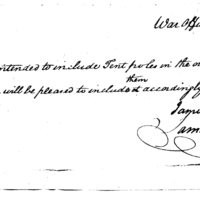 War Off
ntended to include Tent poles in the o
them
will be pleased to include it accordingly
Jam
Sam